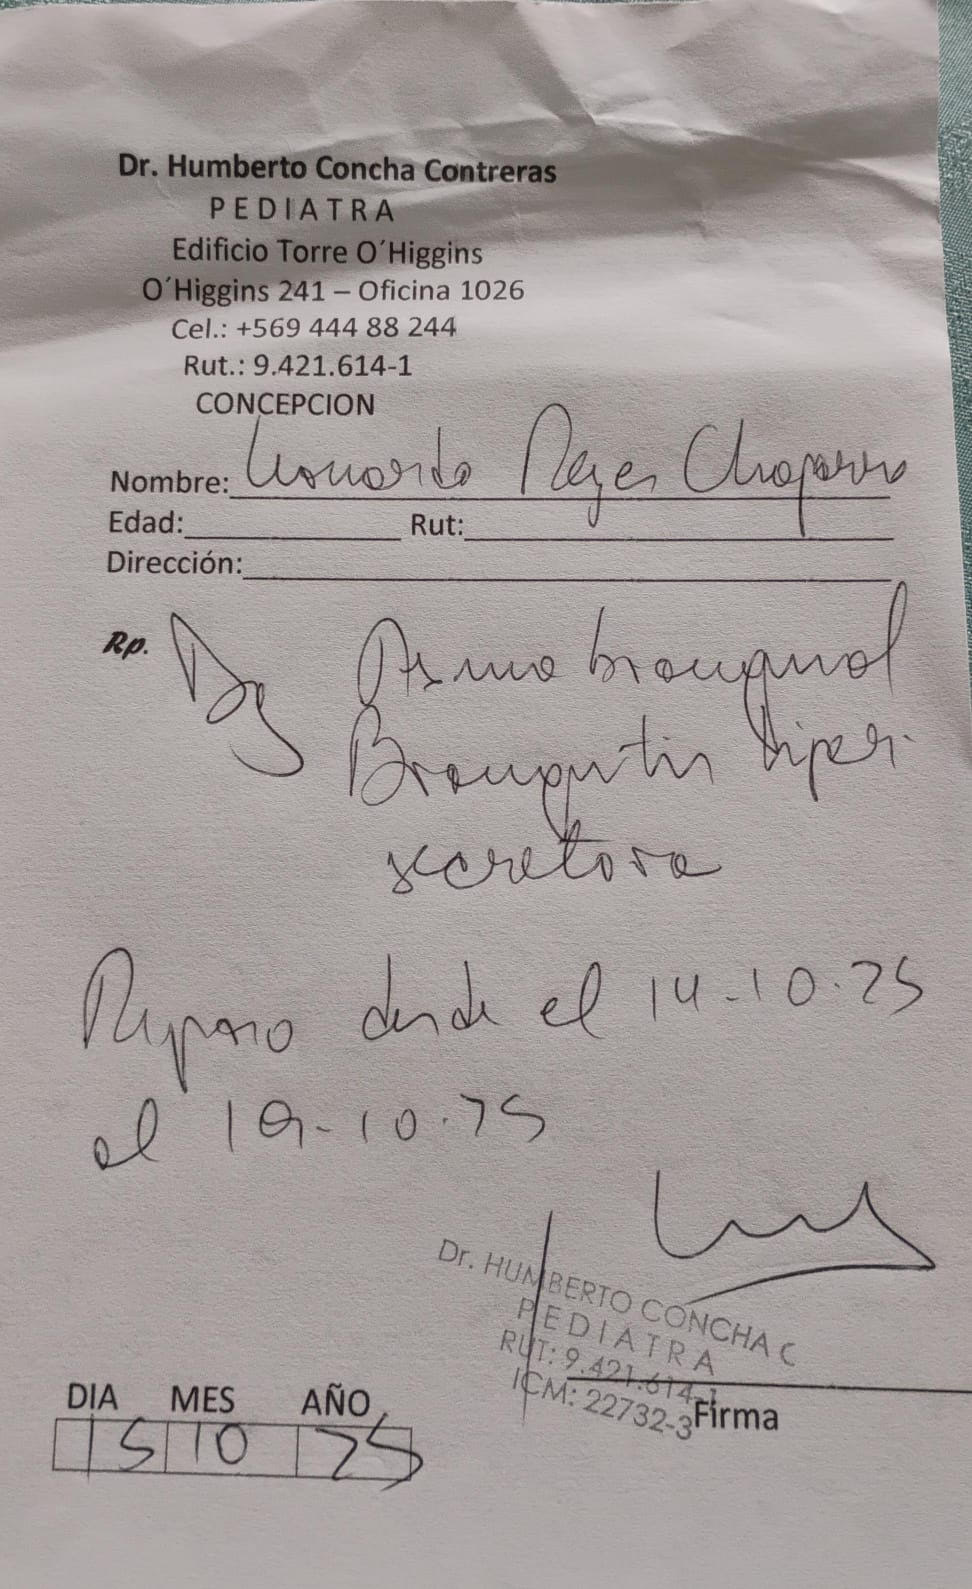 Dr. Humberto Concha Contreras
PEDIATRA
Edificio Torre O´Higgins
O´Higgins 241 – Oficina 1026
Cel.: +569 444 88 244
Rut.: 9.421.614-1
CONCEPCION
Nombre: Leonardo Reyes Chaparro
Edad: Rut:
Dirección:
Rp. Dg Asma bronquial
Bronquitis hiper
secretora
Reposo desde el 14-10-25
al 19-10-25
Dr. HUMBERTO CONCHA C
PEDIATRA
RUT: 9.421.614-1
ICM: 22732-3
Firma
DIA MES AÑO
15 10 25